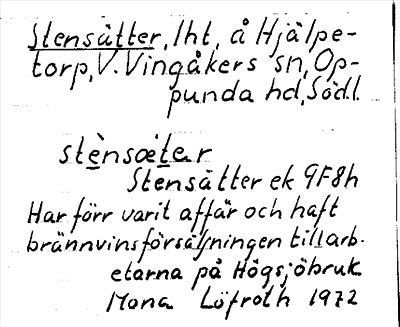 Stensätter, lht, å Hjälpe-
torp, V. Vingåkers sn, Op-
punda hd, Södl.
stènsæ̀ter
Stensätter ek 9F8h
Har förr varit affär och haft
brännvinsförsäljningen till arb-
etarna på Högsjöbruk
Mona Löfroth 1972